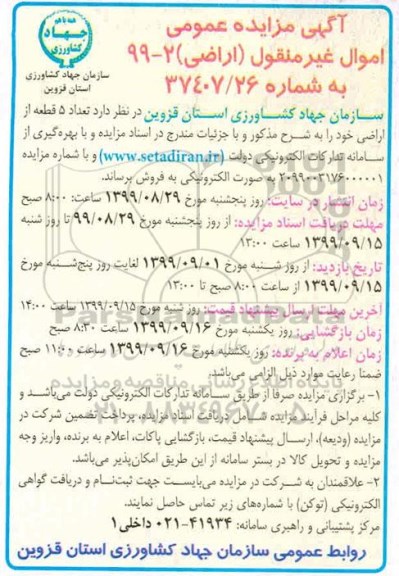 همه با هم
جهاد
کشاورزی
سازمان جهاد کشاورزی
استان قزوین
آگهی مزایده عمومی
اموال غیرمنقول (اراضی)۲-۹۹
به شماره ۳۷۴۰۷/۲۶
سازمان جهاد کشاورزی استان قزوین در نظر دارد تعداد ۵ قطعه از
اراضی خود را به شرح مذکور و با جزئیات مندرج در اسناد مزایده و با بهره‌گیری از
سامانه تدارکات الکترونیکی دولت (www.setadiran.ir) و با شماره مزایده
۲۰۹۹۰۰۳۱۷۶۰۰۰۰۰۱ به صورت الکترونیکی به فروش برساند.
زمان انتشار در سایت: روز پنجشنبه مورخ ۱۳۹۹/۰۸/۲۹ ساعت: ۸:۰۰ صبح
مهلت دریافت اسناد مزایده: از روز پنجشنبه مورخ ۹۹/۰۸/۲۹ تا روز شنبه
۱۳۹۹/۰۹/۱۵ ساعت ۱۳:۰۰
تاریخ بازدید: از روز شنبه مورخ ۱۳۹۹/۰۹/۰۱ لغایت روز پنج‌شنبه مورخ
۱۳۹۹/۰۹/۱۵ از ساعت ۸:۰۰ صبح تا ۱۳:۰۰
آخرین مهلت ارسال پیشنهاد قیمت: روز شنبه مورخ ۱۳۹۹/۰۹/۱۵ ساعت ۱۴:۰۰
زمان بازگشایی: روز یکشنبه مورخ ۱۳۹۹/۰۹/۱۶ ساعت ۸:۳۰ صبح
زمان اعلام به برنده: روز یکشنبه مورخ ۱۳۹۹/۰۹/۱۶ ساعت ۱۱:۰۰ صبح
ضمنا رعایت موارد ذیل الزامی می‌باشد.
۱- برگزاری مزایده صرفا از طریق سامانه تدارکات الکترونیکی دولت می‌باشد و
کلیه مراحل فرآیند مزایده شامل دریافت اسناد مزایده، پرداخت تضمین شرکت در
مزایده (ودیعه)، ارسال پیشنهاد قیمت، بازگشایی پاکات، اعلام به برنده، واریز وجه
مزایده و تحویل کالا در بستر سامانه از این طریق امکان‌پذیر می‌باشد.
۲- علاقمندان به شرکت در مزایده می‌بایست جهت ثبت‌نام و دریافت گواهی
الکترونیکی (توکن) با شماره‌های زیر تماس حاصل نمایند.
مرکز پشتیبانی و راهبری سامانه: ۴۱۹۳۴-۰۲۱ داخلی۱
روابط عمومی سازمان جهاد کشاورزی استان قزوین